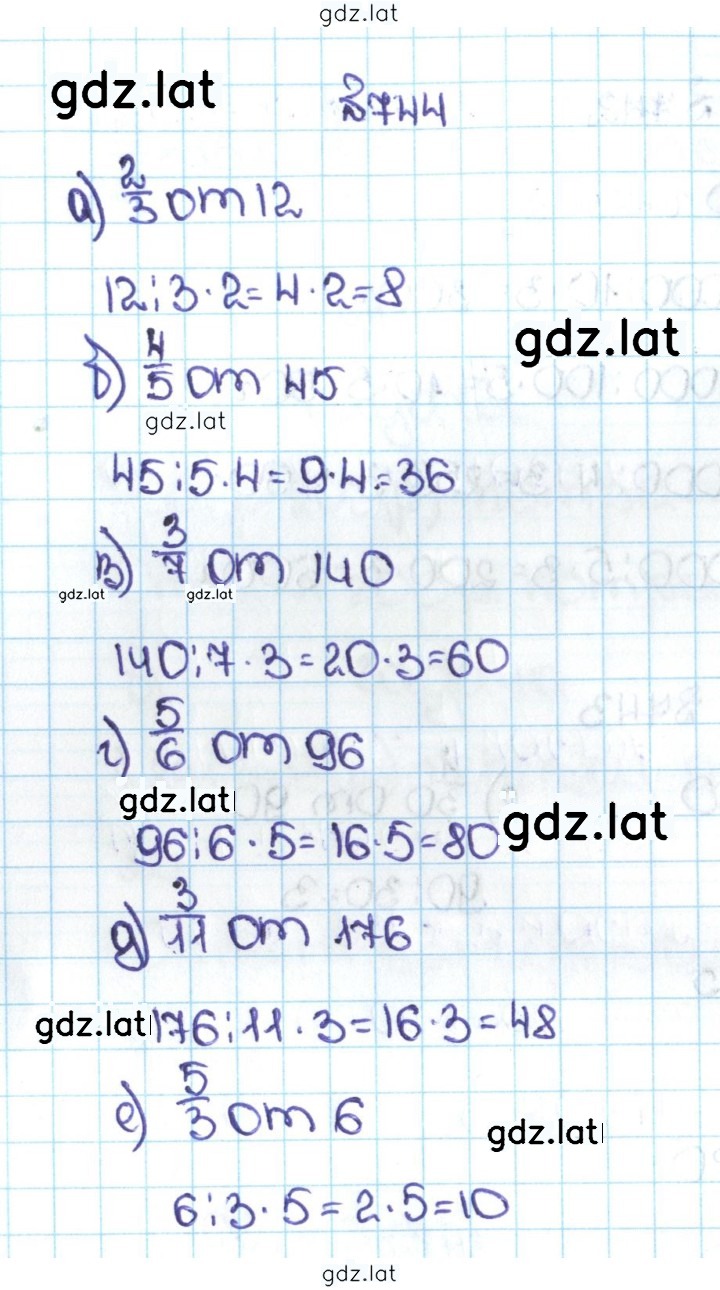 gdz.lat
gdz.lat
№744
а) 2/3 от 12
12:3·2=4·2=8
gdz.lat
б) 4/5 от 45
gdz.lat
45:5·4=9·4=36
в) 3/7 от 140
gdz.lat gdz.lat
140:7·3=20·3=60
г) 5/6 от 96
gdz.lat
gdz.lat
96:6·5=16·5=80
д) 3/11 от 176
gdz.lat
176:11·3=16·3=48
е) 5/3 от 6
gdz.lat
6:3·5=2·5=10
gdz.lat